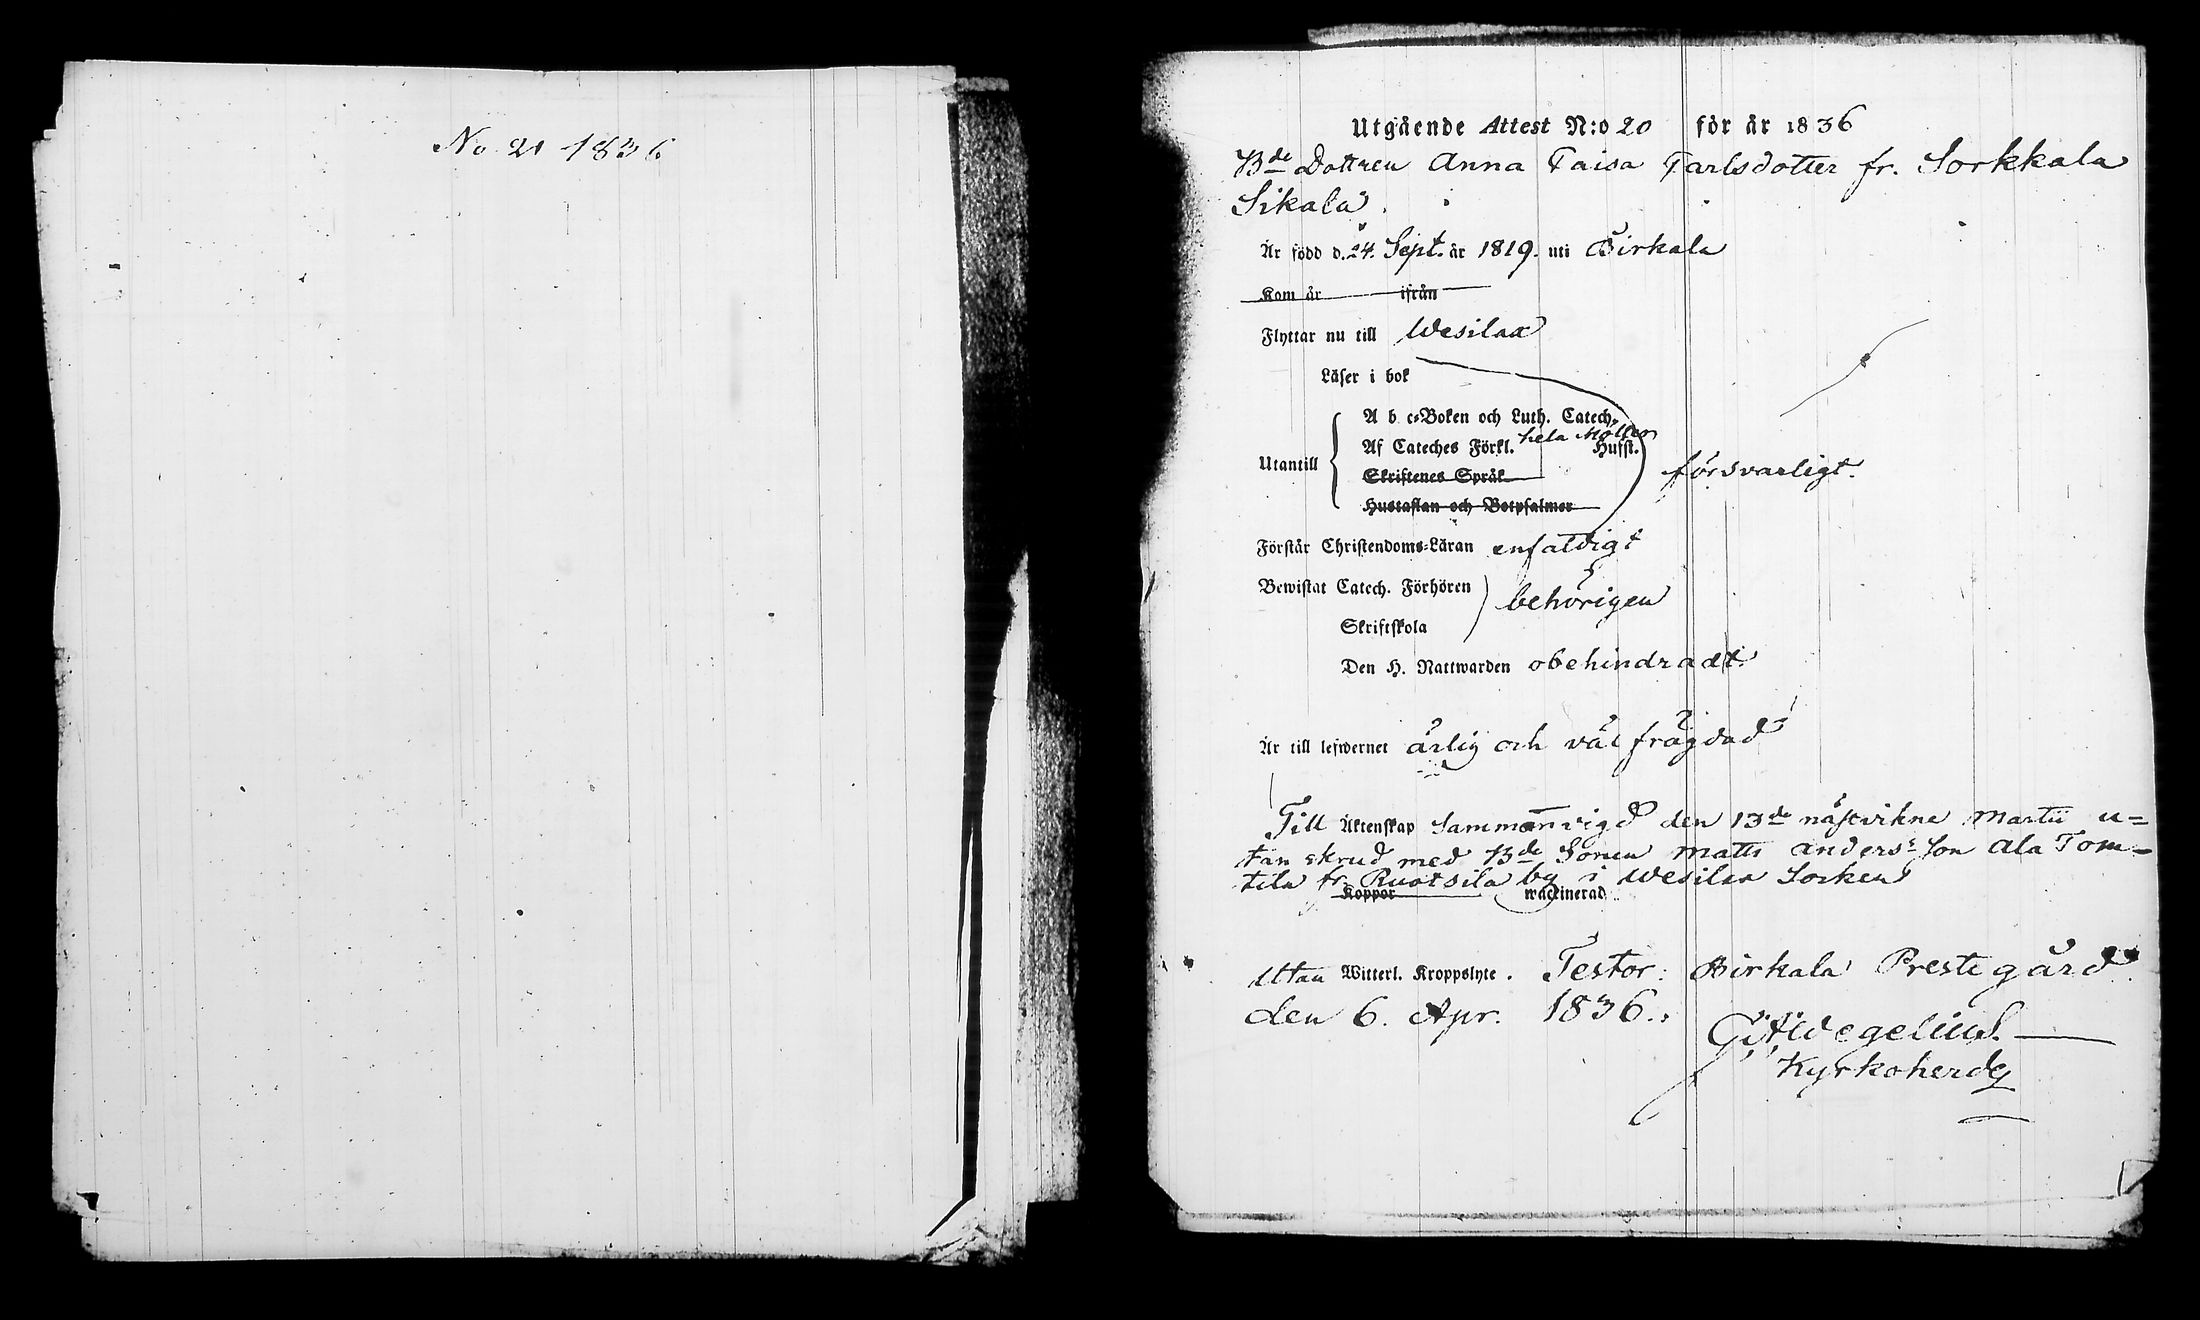 No 21 1836
Utgående Attest N:o 20 för år 1836
Bde Dottren Anna Caisa Carlsdotter fr. Sorkkala
Sikala.
Är född d. 24. Sept. år 1819. uti Birkala
Kom år ifrån
Flyttar nu till Wesilax
Läser i bok
A b c-Boken och Luth. Catech.
Af Cateches Förkl. hela Möller Hufst.
Utantill försvarligt.
Skriftenes Språk
Hustaflan och Botpsalmer
Förstår Christendoms-Läran enfaldigt
Bewistat Catech. Förhören behörigen
Skriftskola
Den H. Nattwarden obehindradt
Är till lefwernet ärlig och väl frägdad
Till Äktenskap Sammanvigd den 13de nästvikne Martii u=
tan skrud med Bde Sonen Matts Anders Son Ala Tom=
tila fr. Ruotsila by i Wesilax Socken
Koppor wackinerad
Utan Witterl. Kroppslyte. Testor. Birkala Prestegård
den 6. Apr. 1836.
Widegelius.
Kyrkoherde